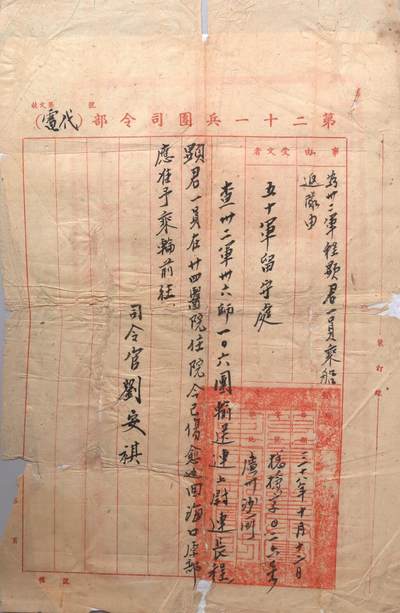 第二十一兵團司令部
(代電)
事由
為卅二軍程顯君一員乘船
返隊由
受文者
五十軍留守處
三十八年十月十二日
字〇二六号
廣州沙河
查卅二軍卅六師一〇六團輸送連上尉連長程
顯君一員在廿四醫院住院今已傷愈返回海口原部
應准予乘輪前往
司令官劉安祺